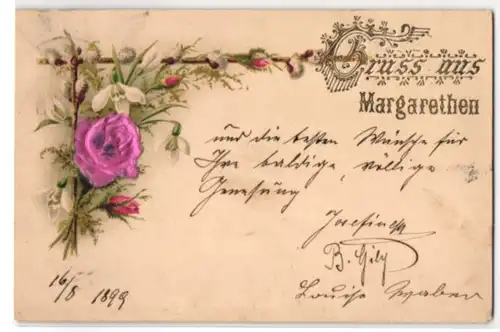 Gruss aus
Margarethen
und die besten Wünsche für
Ihre baldige, völlige
Genesung
B. Gily
16/8 1899
Louise